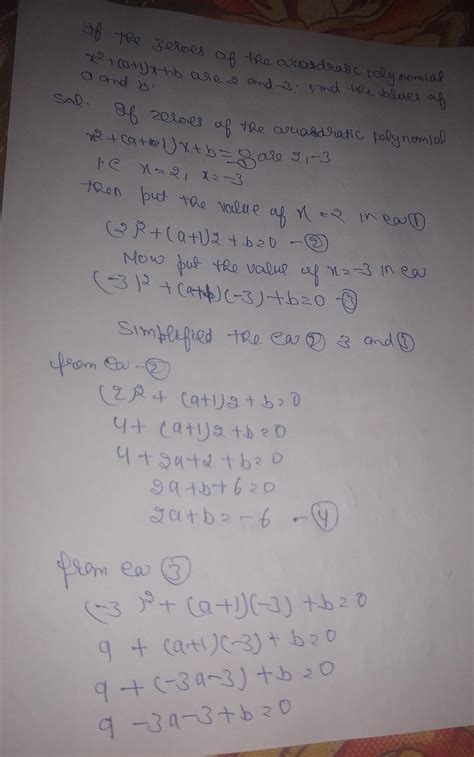 If the zeroes of the quadratic polynomial
x²+(a+1)x+b are 2 and -3. Find the values of
a and b.
Sol. If zeroes of the quadratic polynomial
x²+(a+1)x+b=0 are 2,-3 -①
i.e x=2, x=-3
then put the value of x=2 in eq ①
(2)²+(a+1)2+b=0 -②
Now put the value of x=-3 in eq
(-3)²+(a+1)(-3)+b=0 -③
Simplified the eq ② 3 and
from eq -②
(2)²+(a+1)2+b=0
4+(a+1)2+b=0
4+2a+2+b=0
2a+b+6=0
2a+b=-6 -④
from eq ③
(-3)²+(a+1)(-3)+b=0
9+(a+1)(-3)+b=0
9+(-3a-3)+b=0
9-3a-3+b=0